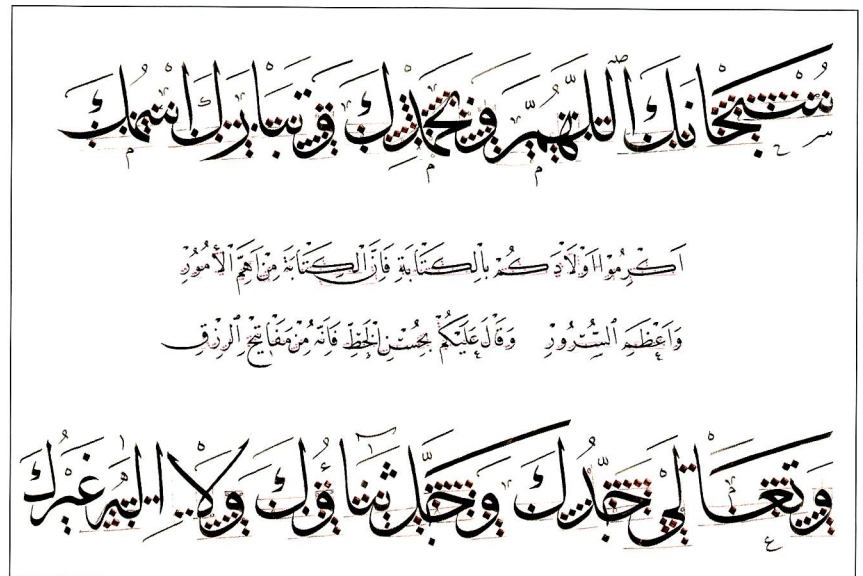 سُبْحَانَكَ اللّٰهُمَّ وَبِحَمْدِكَ وَتَبَارَكَ اسْمُكَ
اَكْرِمُوا اَوْلَادَكُمْ بِالْكِتَابَةِ فَاِنَّ الْكِتَابَةَ مِنْ اَهَمِّ الْاُمُوْرِ
وَاَعْظَمِ السُّرُوْرِ وَقَالَ عَلَيْكُمْ بِحُسْنِ الْخَطِّ فَاِنَّهُ مِنْ مَفَاتِيْحِ الرِّزْقِ
وَتَعَالٰى جَدُّكَ وَجَلَّ ثَنَاؤُكَ وَلَا اِلٰهَ غَيْرُكَ